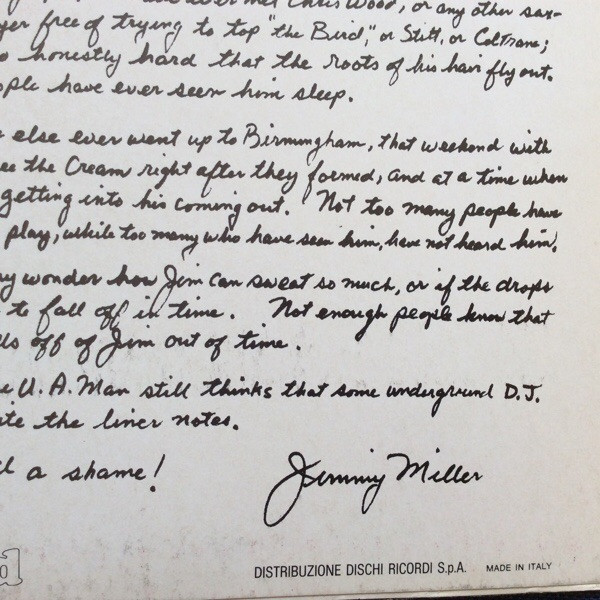 ever met Chris Wood, or any other sax-
yer free of trying to top "the Bird," or Stitt, or Coltrane;
o honestly hard that the roots of his hair fly out.
ople have ever seen him sleep.
else ever went up to Birmingham, that weekend with
ee the Cream right after they formed; and at a time when
getting into his coming out. Not too many people have
play; while too many who have seen him, have not heard him.
ny wonder how Jim can sweat so much, or if the drops
to fall off in time. Not enough people know that
lls off of Jim out of time.
e U.A. Man still thinks that some underground D.J.
ote the liner notes.
a shame!
Jimmy Miller
DISTRIBUZIONE DISCHI RICORDI S.p.A. MADE IN ITALY